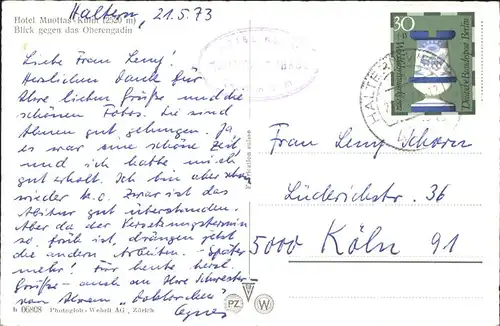 Hotel Muottas-Kulm (2520 m)
Blick gegen das Oberengadin
Haltern, 21.5.73
Liebe Frau Leny!
Herzlichen Dank für
Ihre lieben Grüße und die
schönen Fotos. Die sind
Ihnen gut gelungen. Ja,
es war eine schöne Zeit,
und ich hatte mich
gut erholt. Ich bin aber schon
wieder k.o. Zwar ist das
Abitur gut überstanden.
Aber da der Versetzungstermin
so früh ist, drängen jetzt
die andern Arbeiten. Später
mehr! Für heute herzl.
Grüße - auch an Ihre Schwester
von Ihrem "Doktorchen"
Agnes
b 06808 Photoglob-Wehrli AG., Zürich
Fabrication suisse
PZ W
30
Deutsche Bundespost Berlin
HALTERN
Frau Leny Schorn
Lüderichstr. 36
5000 Köln 91